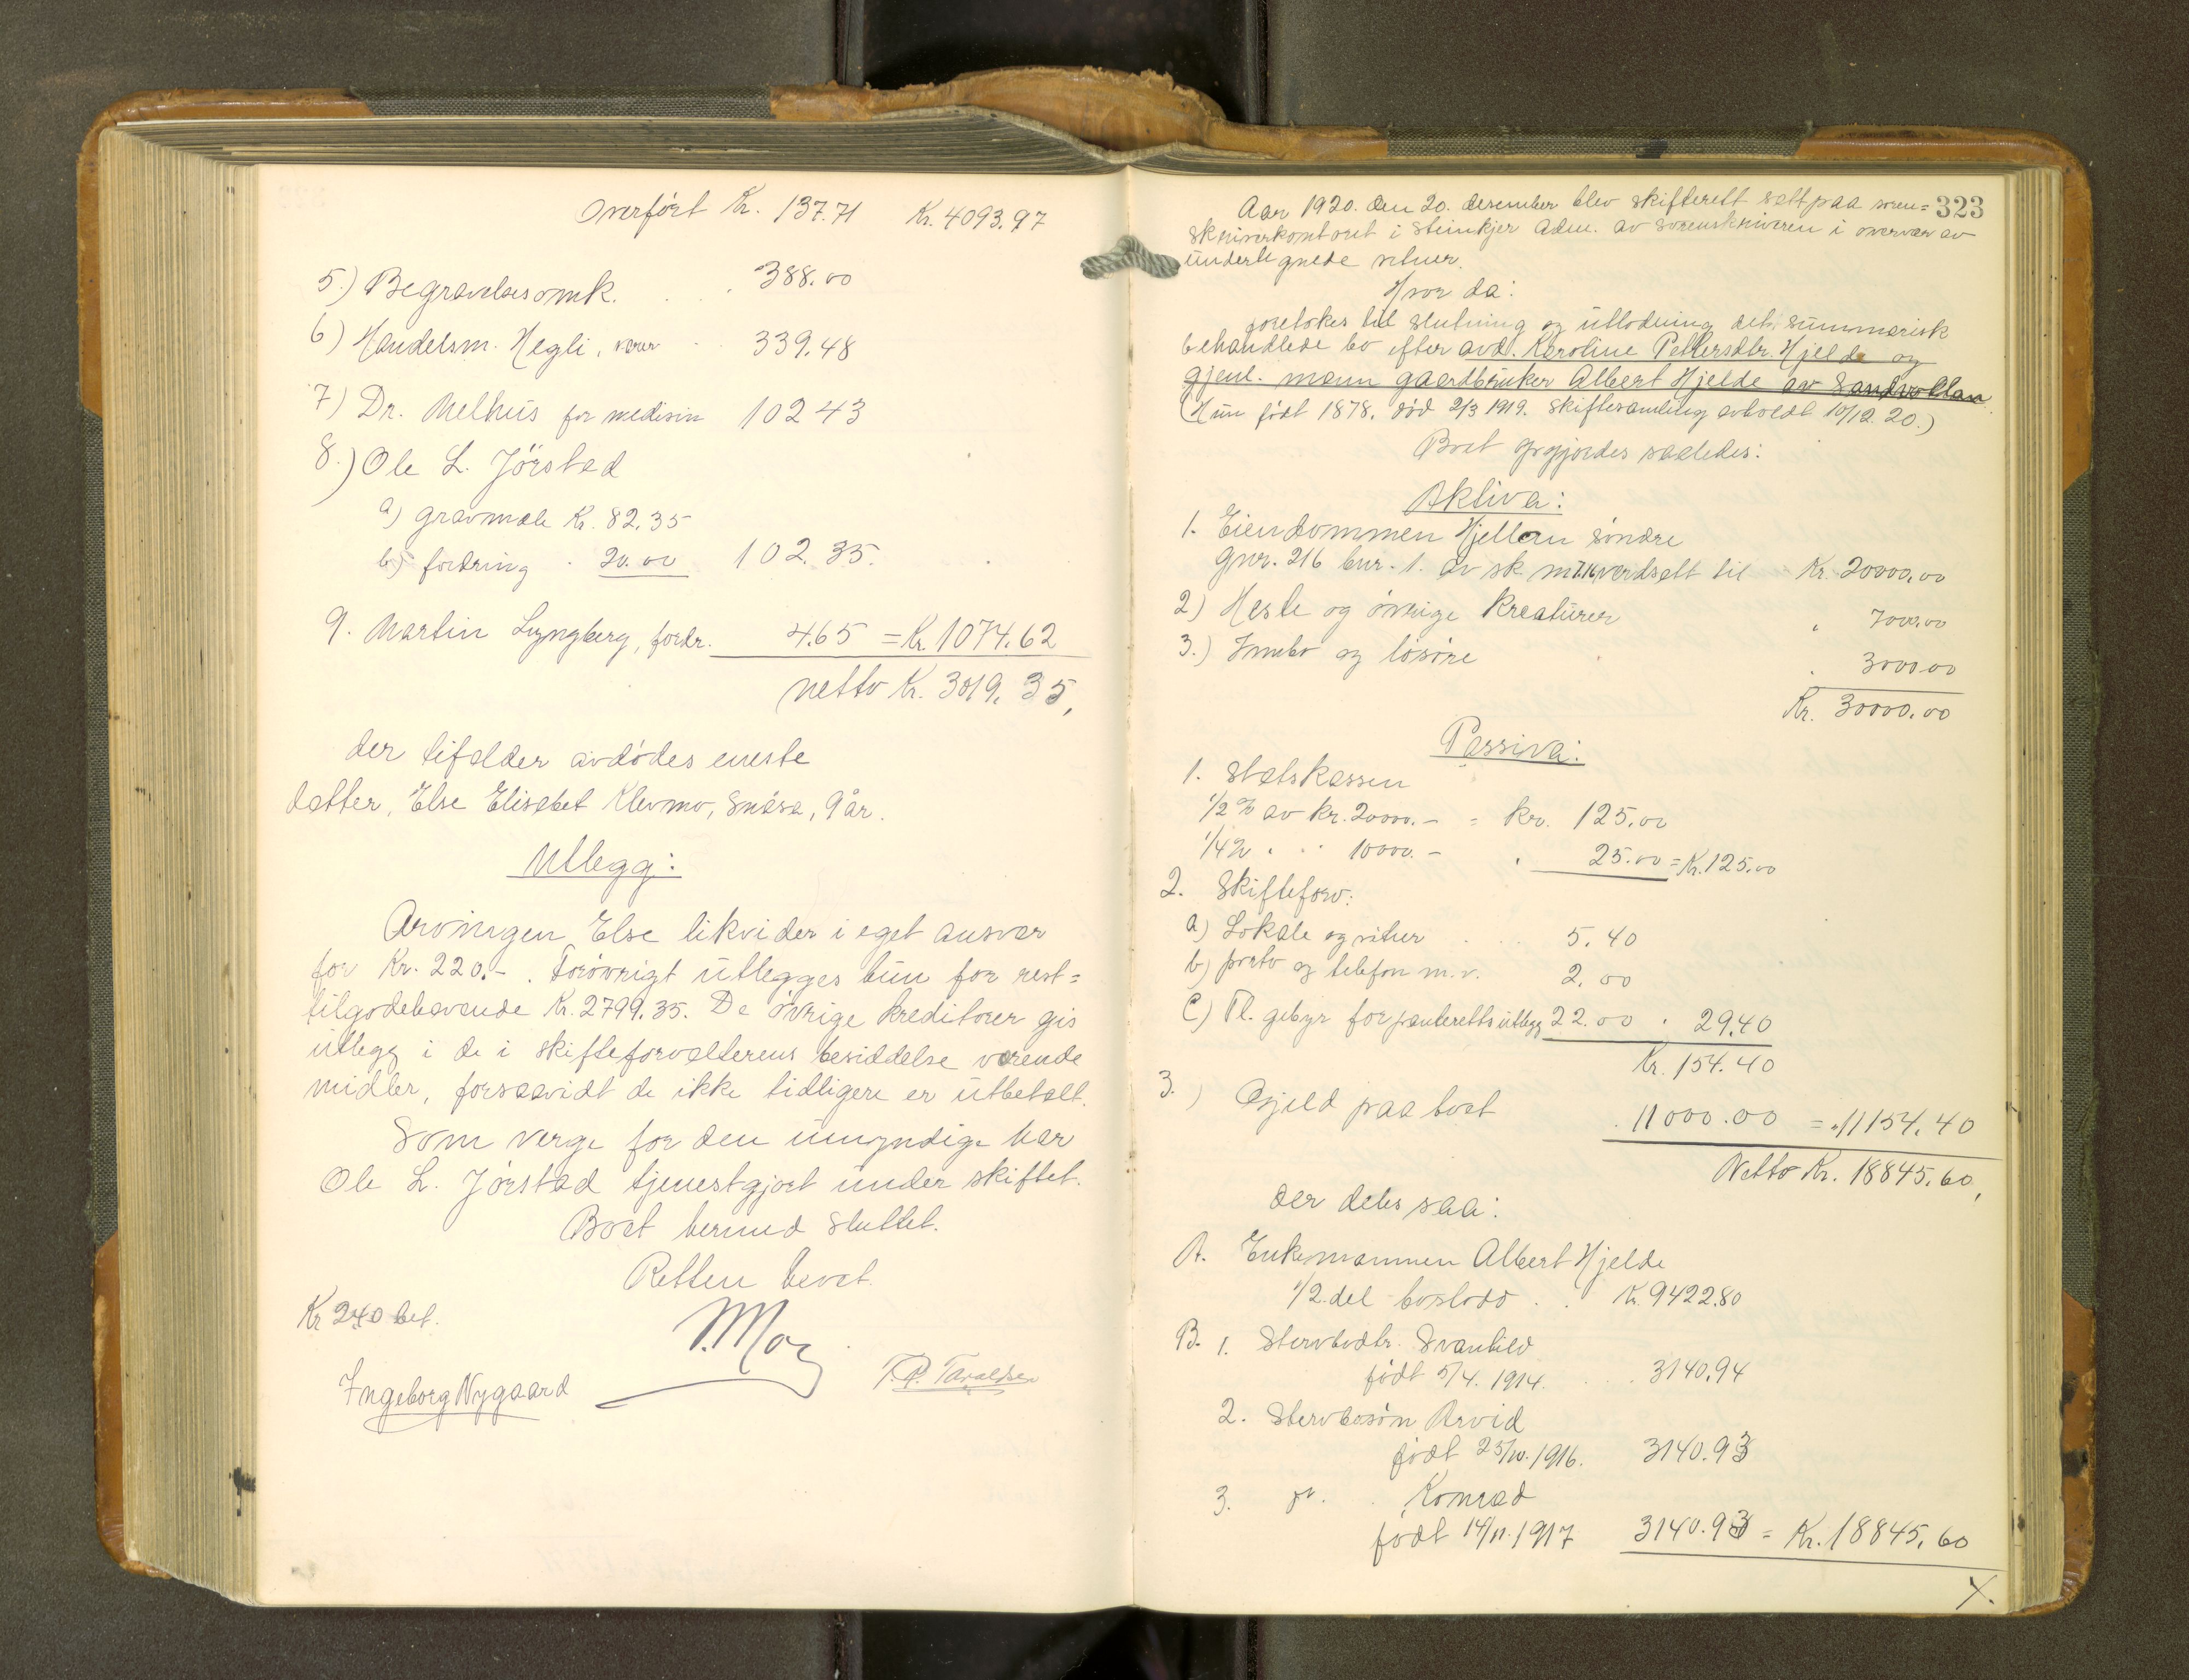 Overført Kr. 137.71 Kr. 4093.97
5.) Begravelsesomk. . . 388.00
6) Handelsm. Hegli, varer . . 339.48
7) Dr. Melhus for medisin 102 43
8.) Ole L. Jørstad
a) gravmæle Kr. 82.35
b) fordring . 20.00 102.35.
9. Martin Lyngberg, fordr. 4.65 = Kr. 1074.62
netto Kr. 3019.35,
der tilfalder avdødes eneste
datter, Else Elisabet Klevmo, Snåsa, 9 år.
Utlegg:
Arvingen Else likvider i eget ansvar
for Kr. 220.- . Forøvrigt utlegges hun for rest=
tilgodehavende Kr. 2799.35. De øvrige kreditorer gis
utlegg i de i skifteforvalterens besiddelse værende
midler, forsaavidt de ikke tidligere er utbetalt.
Som verge for den umyndige har
Ole L. Jørstad tjenestgjort under skiftet.
Boet hermed sluttet.
Retten hevet.
Kr 240 bet.
Ingeborg Nygaard
323
Aar 1920. den 20. desember blev skifterett satt paa soren=
skriverkontoret i Steinkjer Adm. av sorenskriveren i overvær av
undertegnede vitner.
Hvor da:
foretokes til slutning og utlodning det summarisk
behandlede bo efter avd. Karoline Pettersdtr. Hjelde og
gjenl. mann gaardbruker Albert Hjelde av Sandvollan
(Hun født 1878, død 2/3 1919. Skiftesamling avholdt 10/12 20.)
Boet opgjordes saaledes:
Aktiva:
1. Eiendommen Hjellan søndre
gnr. 216 bnr. 1. av sk m 7.16, verdsatt til Kr. 20000.00
2) Heste og øvrige kreaturer " 7000.00
3.) Innbo og løsøre . 3000.00
Kr. 30000.00
Passiva:
1. Statskassen
1/2 % av kr. 20000.- = kr. 125.00
1/4 % " " 10000.- " 25.00 = Kr. 125.00
2. Skifteforv:
a) Lokale og vitner . . . 5.40
b) porto og telefon m.v. 2.00
c) Tl. gebyr for panterettsutlegg 22.00 " 29.40
Kr. 154.40
3.) Gjeld paa boet . 11000.00 = " 11154.40
Netto Kr. 18845.60,
der deles saa:
A. Enkemannen Albert Hjelde
1/2 del boslodd . . Kr. 9422.80
B. 1. Stervbodtr. Svanhild
født 5/4. 1914. . . . 3140.94
2. Stervbosøn Arvid
født 25/10. 1916. 3140.93
3. do. . Konrad
født 14/11. 1917 3140.93 = Kr. 18845.60